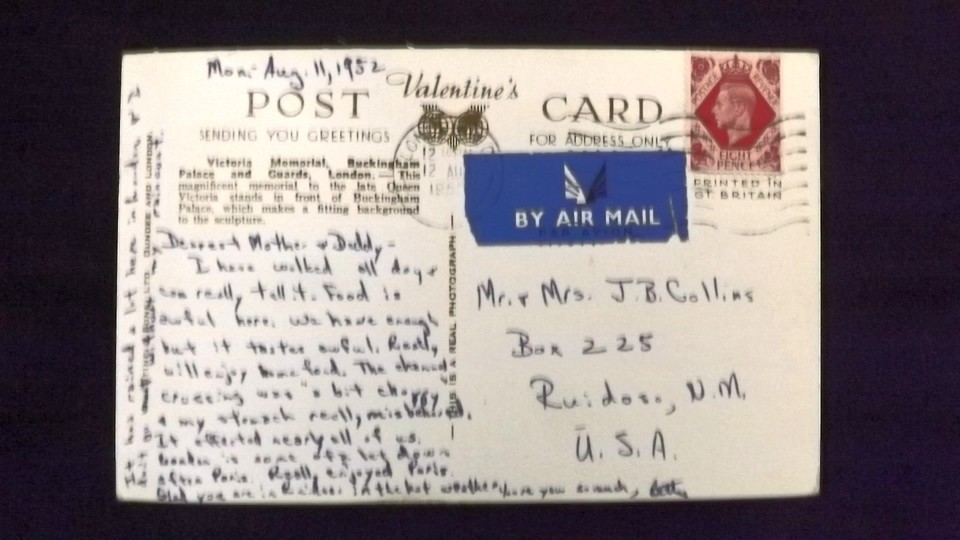 Mon. Aug. 11, 1952
Valentine's
POST CARD
SENDING YOU GREETINGS
FOR ADDRESS ONLY
Victoria Memorial, Buckingham
Palace and Guards, London. — This
magnificent memorial to the late Queen
Victoria stands in front of Buckingham
Palace, which makes a fitting background
to the sculpture.
POSTAGE REVENUE
EIGHT
PENCE
PRINTED IN
GT. BRITAIN
BY AIR MAIL
PAR AVION
Dearest Mother & Daddy -
I have walked all day &
can really tell it. Food is
awful here. We have enough
but it tastes awful. Really
will enjoy home food. The channel
crossing was "a bit choppy"
& my stomach really misbehaved.
It effected nearly all of us.
London is some of a let down
after Paris. Really enjoyed Paris.
Glad you are in Ruidoso in the hot weather. Love you so much, Betty
It has rained a lot here in London & I
THIS IS A REAL PHOTOGRAPH
DUNDEE AND LONDON
Mr. & Mrs. J.B. Collins
Box 225
Ruidoso, N.M.
U.S.A.